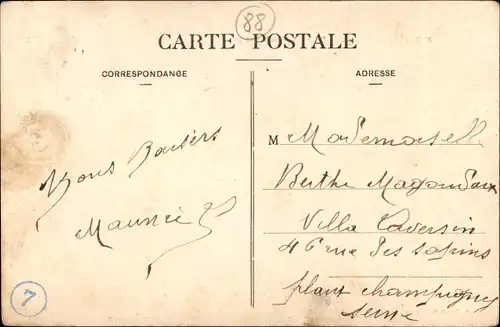 88
CARTE POSTALE
CORRESPONDANCE
ADRESSE
Bons Baisers
Maurice
M Mademoisell
Berthe
Villa
46 rue des sapins
plant champigny
seine
7